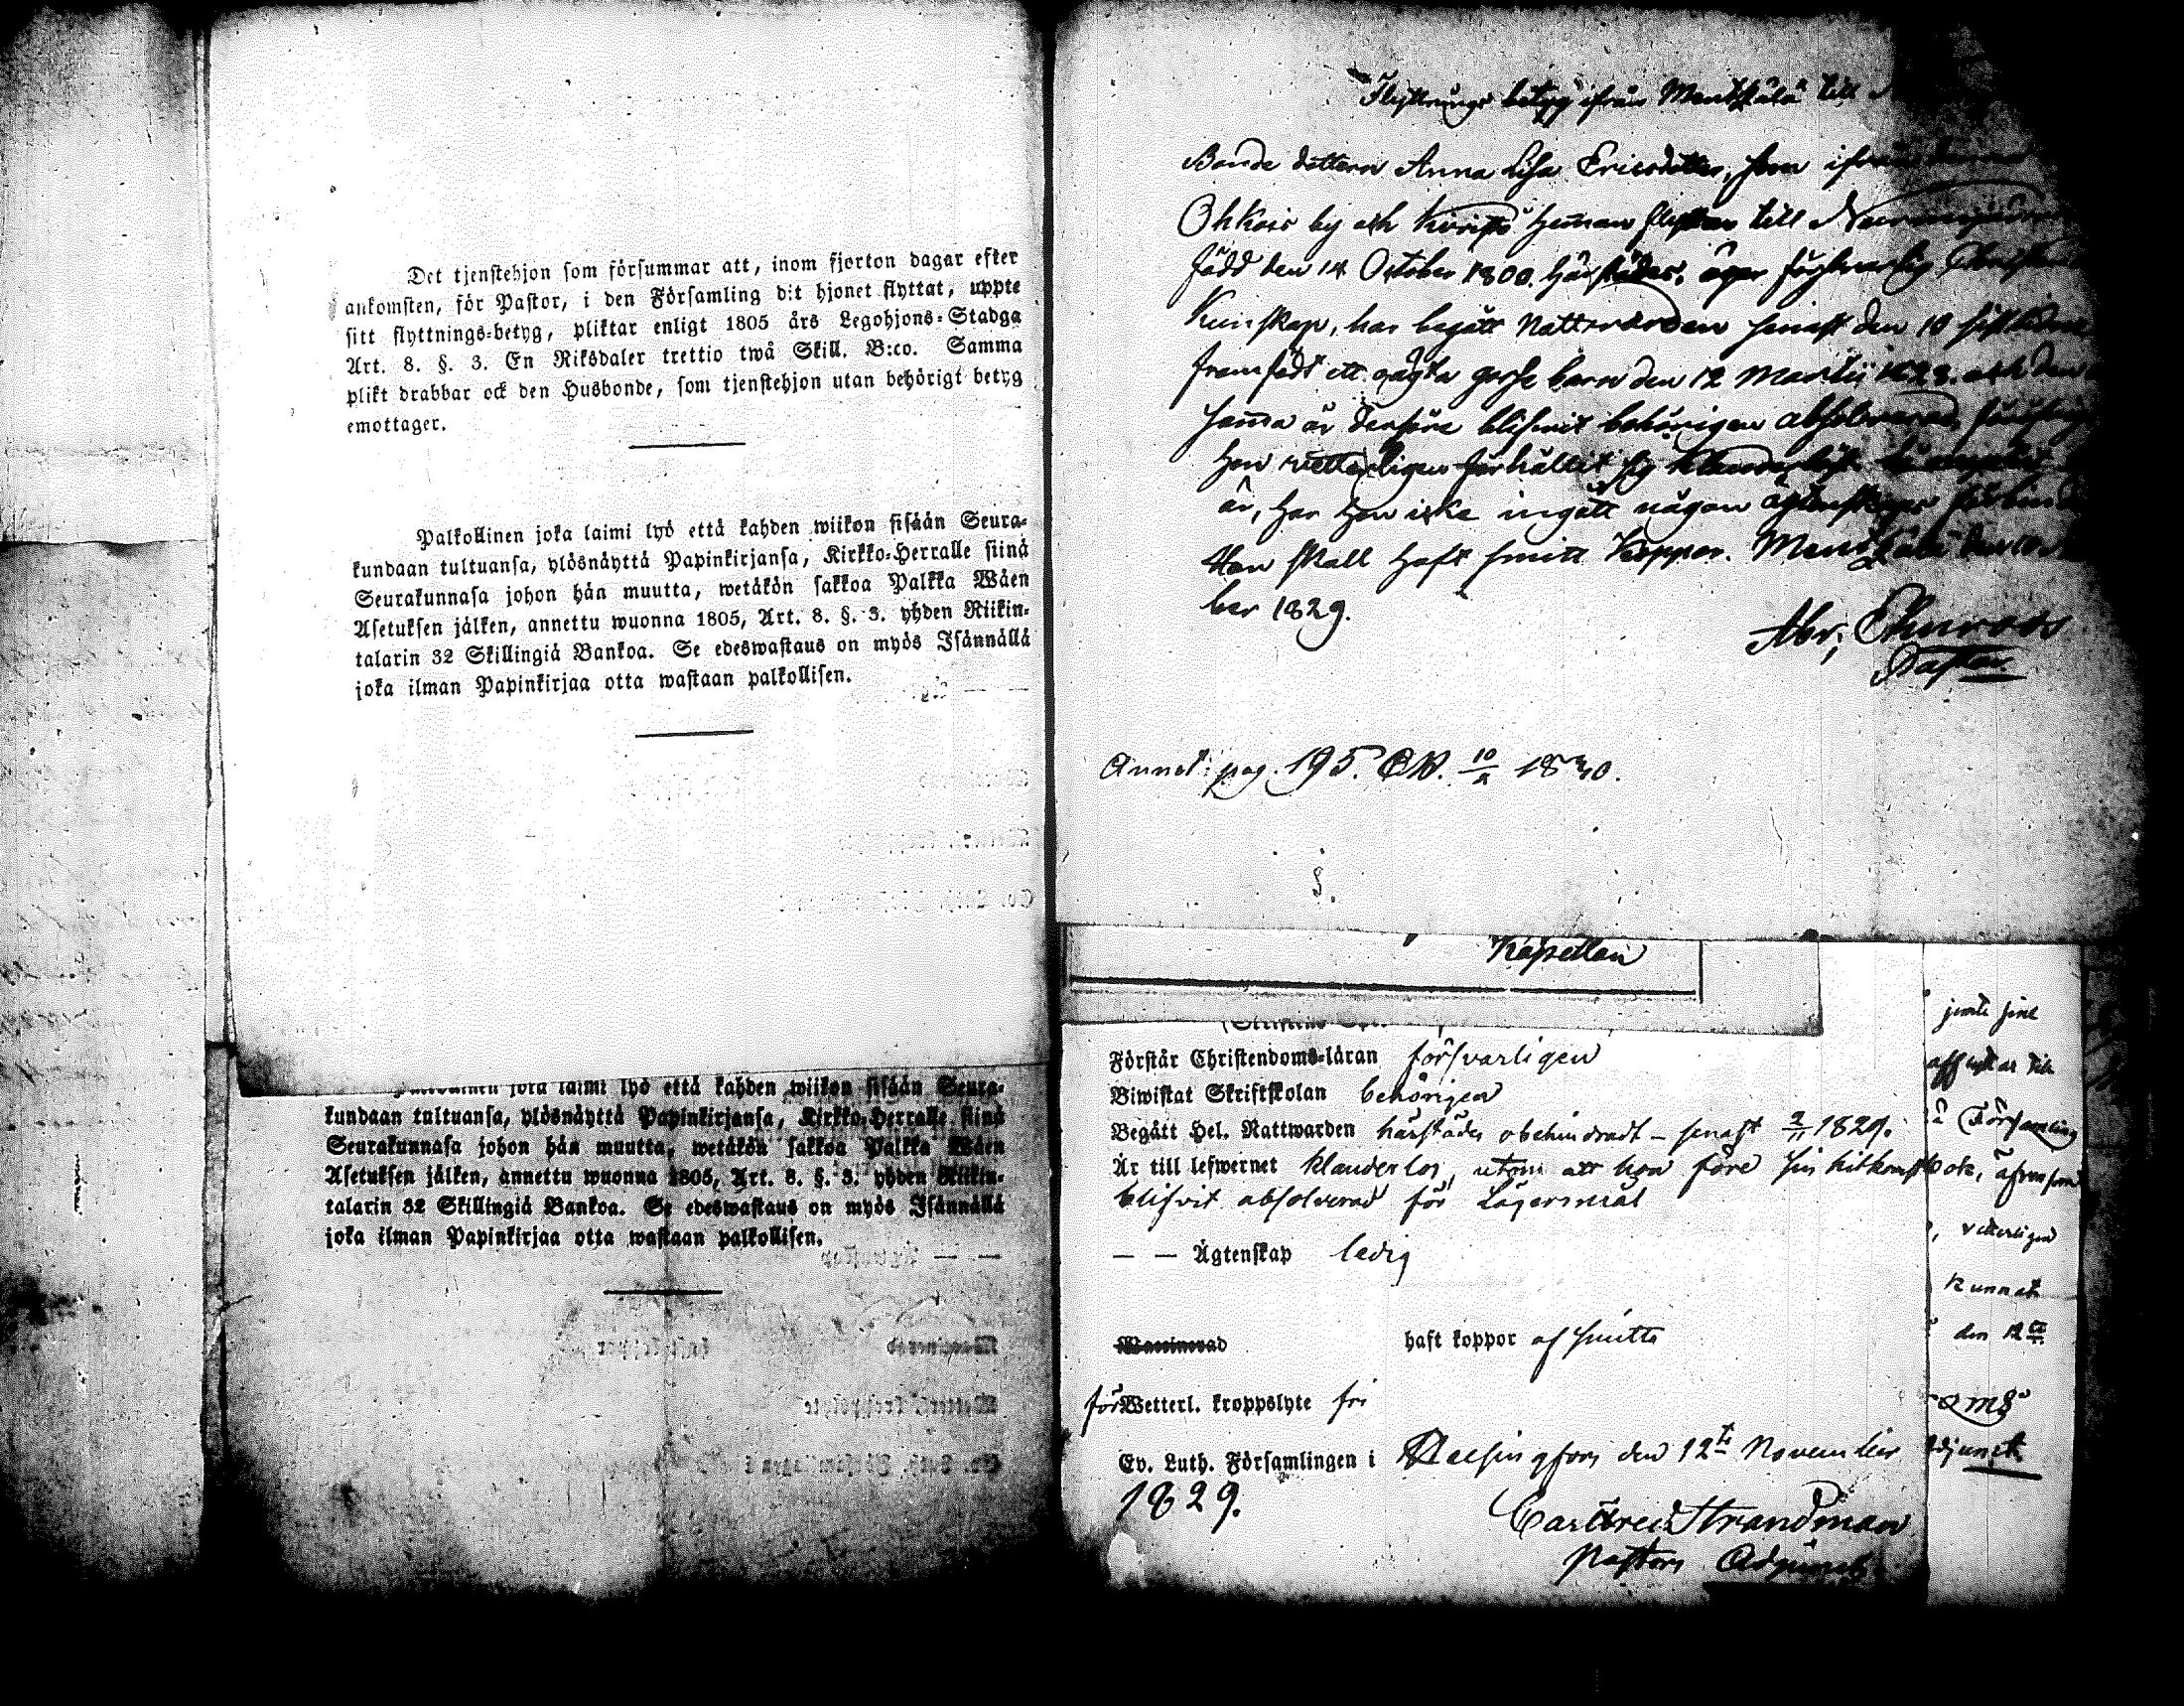 Det tjenstehjon som försummar att, inom fjorton dagar efter
ankomsten, för Pastor, i den Församling dit hjonet flyttat, uppte
sitt flyttnings-betyg, pliktar enligt 1805 års Legohjons-Stadga
Art. 8. §. 3. En Riksdaler trettio twå Skill. B:co. Samma
plikt drabbar ock den Husbonde, som tjenstehjon utan behörigt betyg
emottager.
Palkollinen joka laimi lyö että kahden wiikon sisään Seura-
kundaan tultuansa, ylösnäyttä Papinkirjansa, Kirkko-Herralle siinä
Seurakunnasa johon hän muutta, wetäkön sakkoa Palkka Wäen
Asetuksen jälken, annettu wuonna 1805, Art. 8. §. 3. yhden Riikin-
talarin 32 Skillingiä Bankoa. Se edeswastaus on myös Isännällä
joka ilman Papinkirjaa otta wastaan palkollisen.
laimi lyö että kahden wiikon sisään Seura-
kundaan tultuansa, ylösnäyttä Papinkirjansa, Kirkko-Herralle siinä
Seurakunnasa johon hän muutta, wetäkön sakkoa Palkka Wäen
Asetuksen jälken, annettu wuonna 1805, Art. 8. §. 3. yhden Riikin-
talarin 32 Skillingiä Bankoa. Se edeswastaus on myös Isännällä
joka ilman Papinkirjaa otta wastaan palkollisen.
Flyttnings betyg ifrån Mentsälä till
Bonde dottern Anna Lisa Ericsdotter, som ifrån
Ohkois by och heman flyttar till
född den 14 October 1800. härstädes, äger försvarlig
Kunskap, har begått Nattvarden senast den 10
framfödt ett oägta gosse barn den 12 Martii 1828. och den
samma är derföre blifvit behörigen absolverad,
hon vetterligen förhållit sig klanderlöst
är, har hon icke ingått någon ägtenskaps
Hon skall haft smitt Koppor. Mentsälä den 10
ber 1829.
Abr:
Pastor.
Annot: pag. 195. 10 1830.
Kapellan
Förstår Christendoms-läran försvarligen
Biwistat Skriftskolan behörigen
Begått Hel. Nattwarden härstädes obehindradt - senast 2/11 1829.
Är till lefwernet klanderlös, utom att hon före sin hitkomst
blifvit absolverad för Lägersmål
— — Ägtenskap ledig
Waccinerad haft koppor af smitto
för Wetterl. kroppslyte fri
Ev. Luth. Församlingen i Helsingfors den 12te November
1829.
Strandman
Pastors Adjunct
jemte sine
till
Församling
bok, äfvensom
vetterligen
kunnat
den 12te
djunct